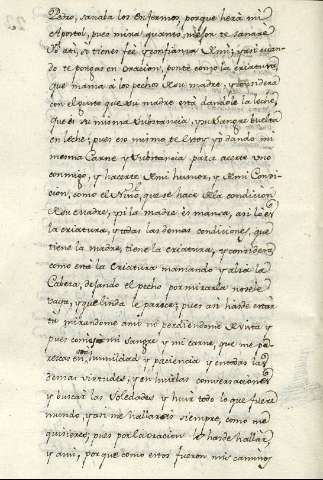 Pedro, sanaba los enfermos, porque hera mi
Apostol, pues mira quanto mejor te sanare
Yo ati, si tienes fee y confiança en mi; y asi cuan
do te pongas en oracion, ponte como la criatura,
que mama a los pechos de su madre, y considera
con el gusto que su madre está dandole la leche,
que es su misma substancia, y su sangre buelta
en leche; pues eso mismo te estoy yo dando mi
mesma Carne y substancia para acerte uno
conmigo, y hacerte de mi humor, y de mi Condi
cion, como el Niño, que se hace de la condicion
de su Madre, y si la madre es mansa, asi lo es
la criatura, y todas las demas condiciones, que
tiene la madre, tiene la criatura, y considera,
como está la Criatura mamando y alsa la
Cabeza, dejando el pecho por mirarla
y que linda le parece; pues asi haz de estar
tu mirandome ami no perdiendome de vista y
pues comes mi sangre y mi carne, que me pa
rescas en humildad y paciencia y en todas las
demas virtudes, y en huir las conversaciones
y buscar las soledades y huir todo lo que fuere
mundo, y asi me hallarás siempre, como me
quisieres; pues por la oracion le haz de hallar,
y ami, porque como estos fueron mis caminos